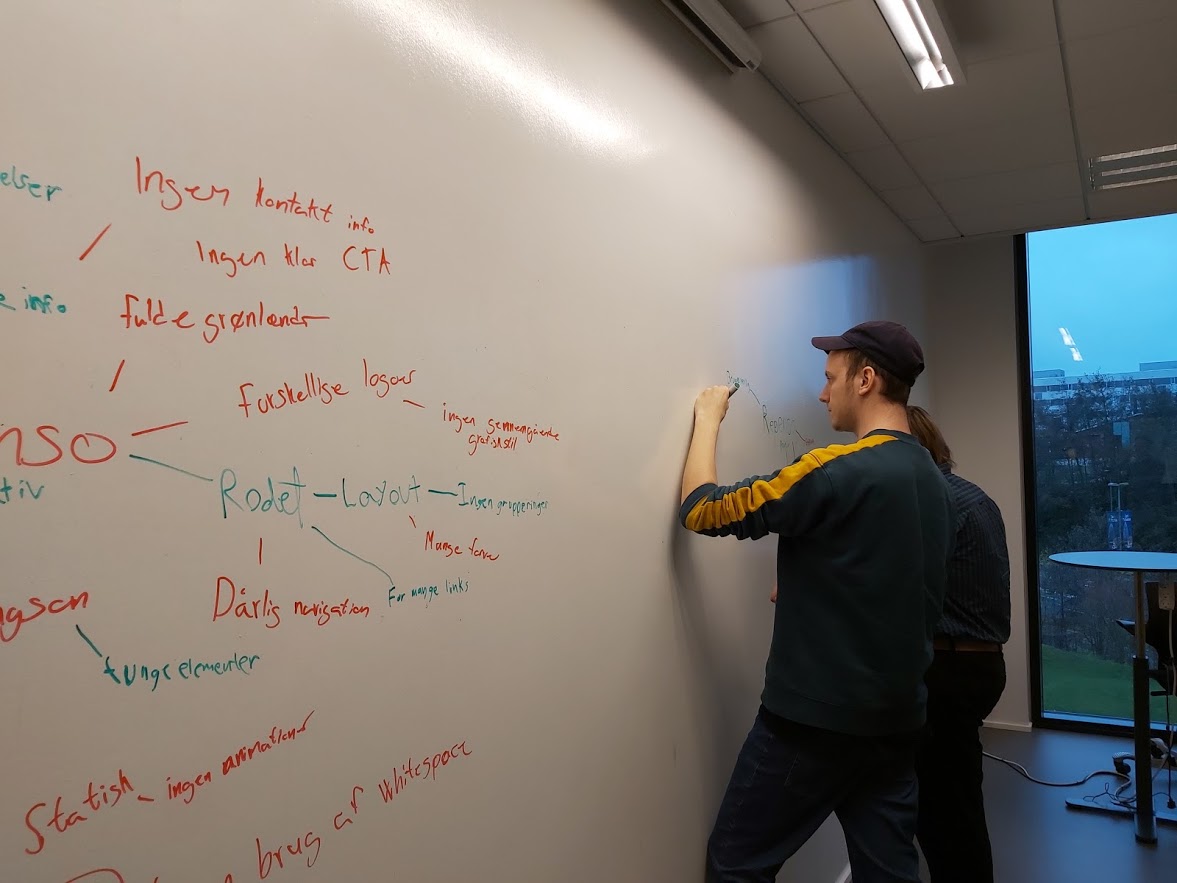 elser
Ingen kontakt info
Ingen klar CTA
e info
fulde grønlændr
Forskellige logoer
ingen gennemgående
grafisk stil
NSO
tiv
Rodet - Layout - Ingen grupperinger
Mange farve
For mange links
Dårlig navigation
gsom
tunge elementer
Statisk - ingen animationer
brug af Whitespace